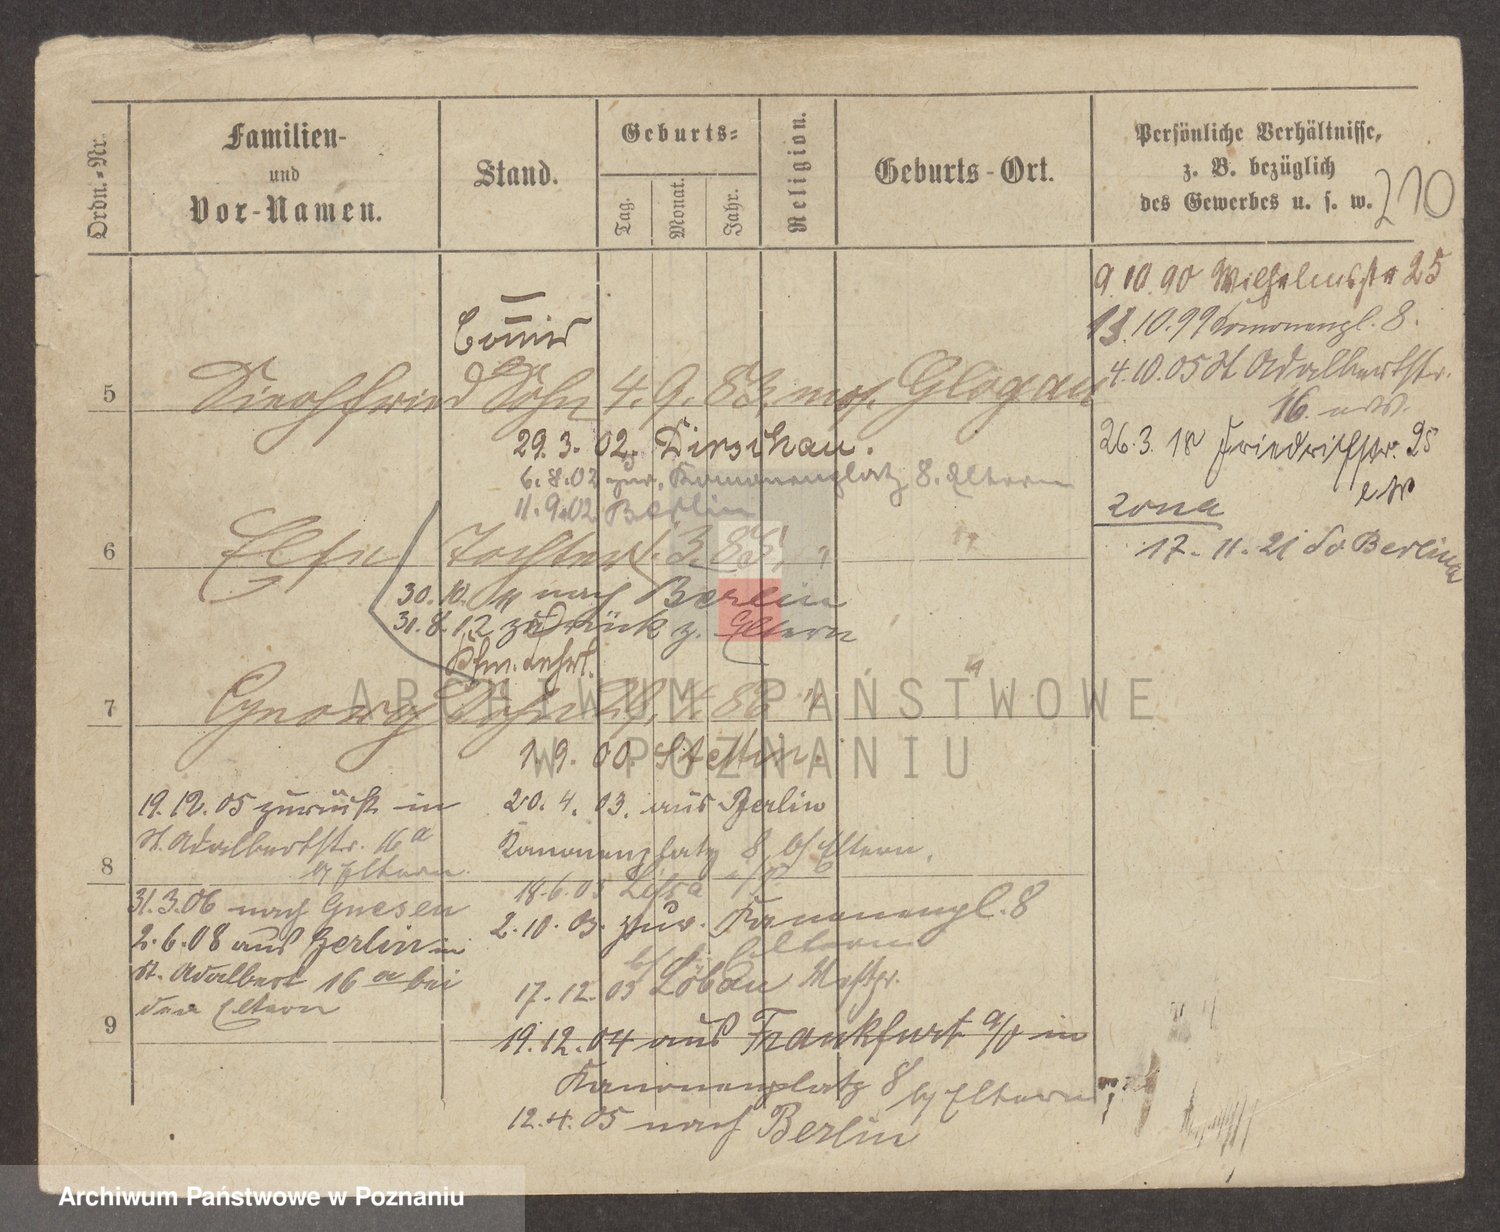 Ordn.-Nr.
Familien-
und
Vor-Namen.
Stand.
Geburts-
Tag.
Monat.
Jahr.
Religion.
Geburts-Ort.
Persönliche Verhältnisse,
z. B. bezüglich
des Gewerbes u. s. w.
210
9.10.90 Wilhelmsstr 25
13.10.99 Kanonenpl. 8.
4.10.05 St Adalbertstr.
16
26.3.18 Friedrichstr. 25
17.11.21 Berlin
Commis
5 Siegfried Sohn 4. 9. 83. mos. Glogau
29.3.02. Dirschau.
6.8.02 zur. Kanonenplatz 8. Eltern
11.9.02 Berlin
6 Else Tochter 3. 85. "
30.10. nach Berlin
31.8.12 zurück z. Eltern
7 Georg Sohn 88 "
1.9.00. Stettin.
20.4.03. aus Berlin
Kanonenplatz 8 b/ Eltern.
18.6.03 Lissa i/P
2.10.03. zur. Kanonenpl. 8
b/ Eltern
17.12.03 Löbau Westpr.
19.12.04 aus Frankfurt a/O in
Kanonenplatz 8 b/ Eltern
12.4.05 nach Berlin
19.12.05 zurück in
St. Adalbertstr. 16a
b/ Eltern.
8
31.3.06 nach Gnesen
2.6.08 aus Berlin in
St. Adalbert 16a bei
den Eltern
9
ARCHIWUM PAŃSTWOWE
W POZNANIU
Archiwum Państwowe w Poznaniu